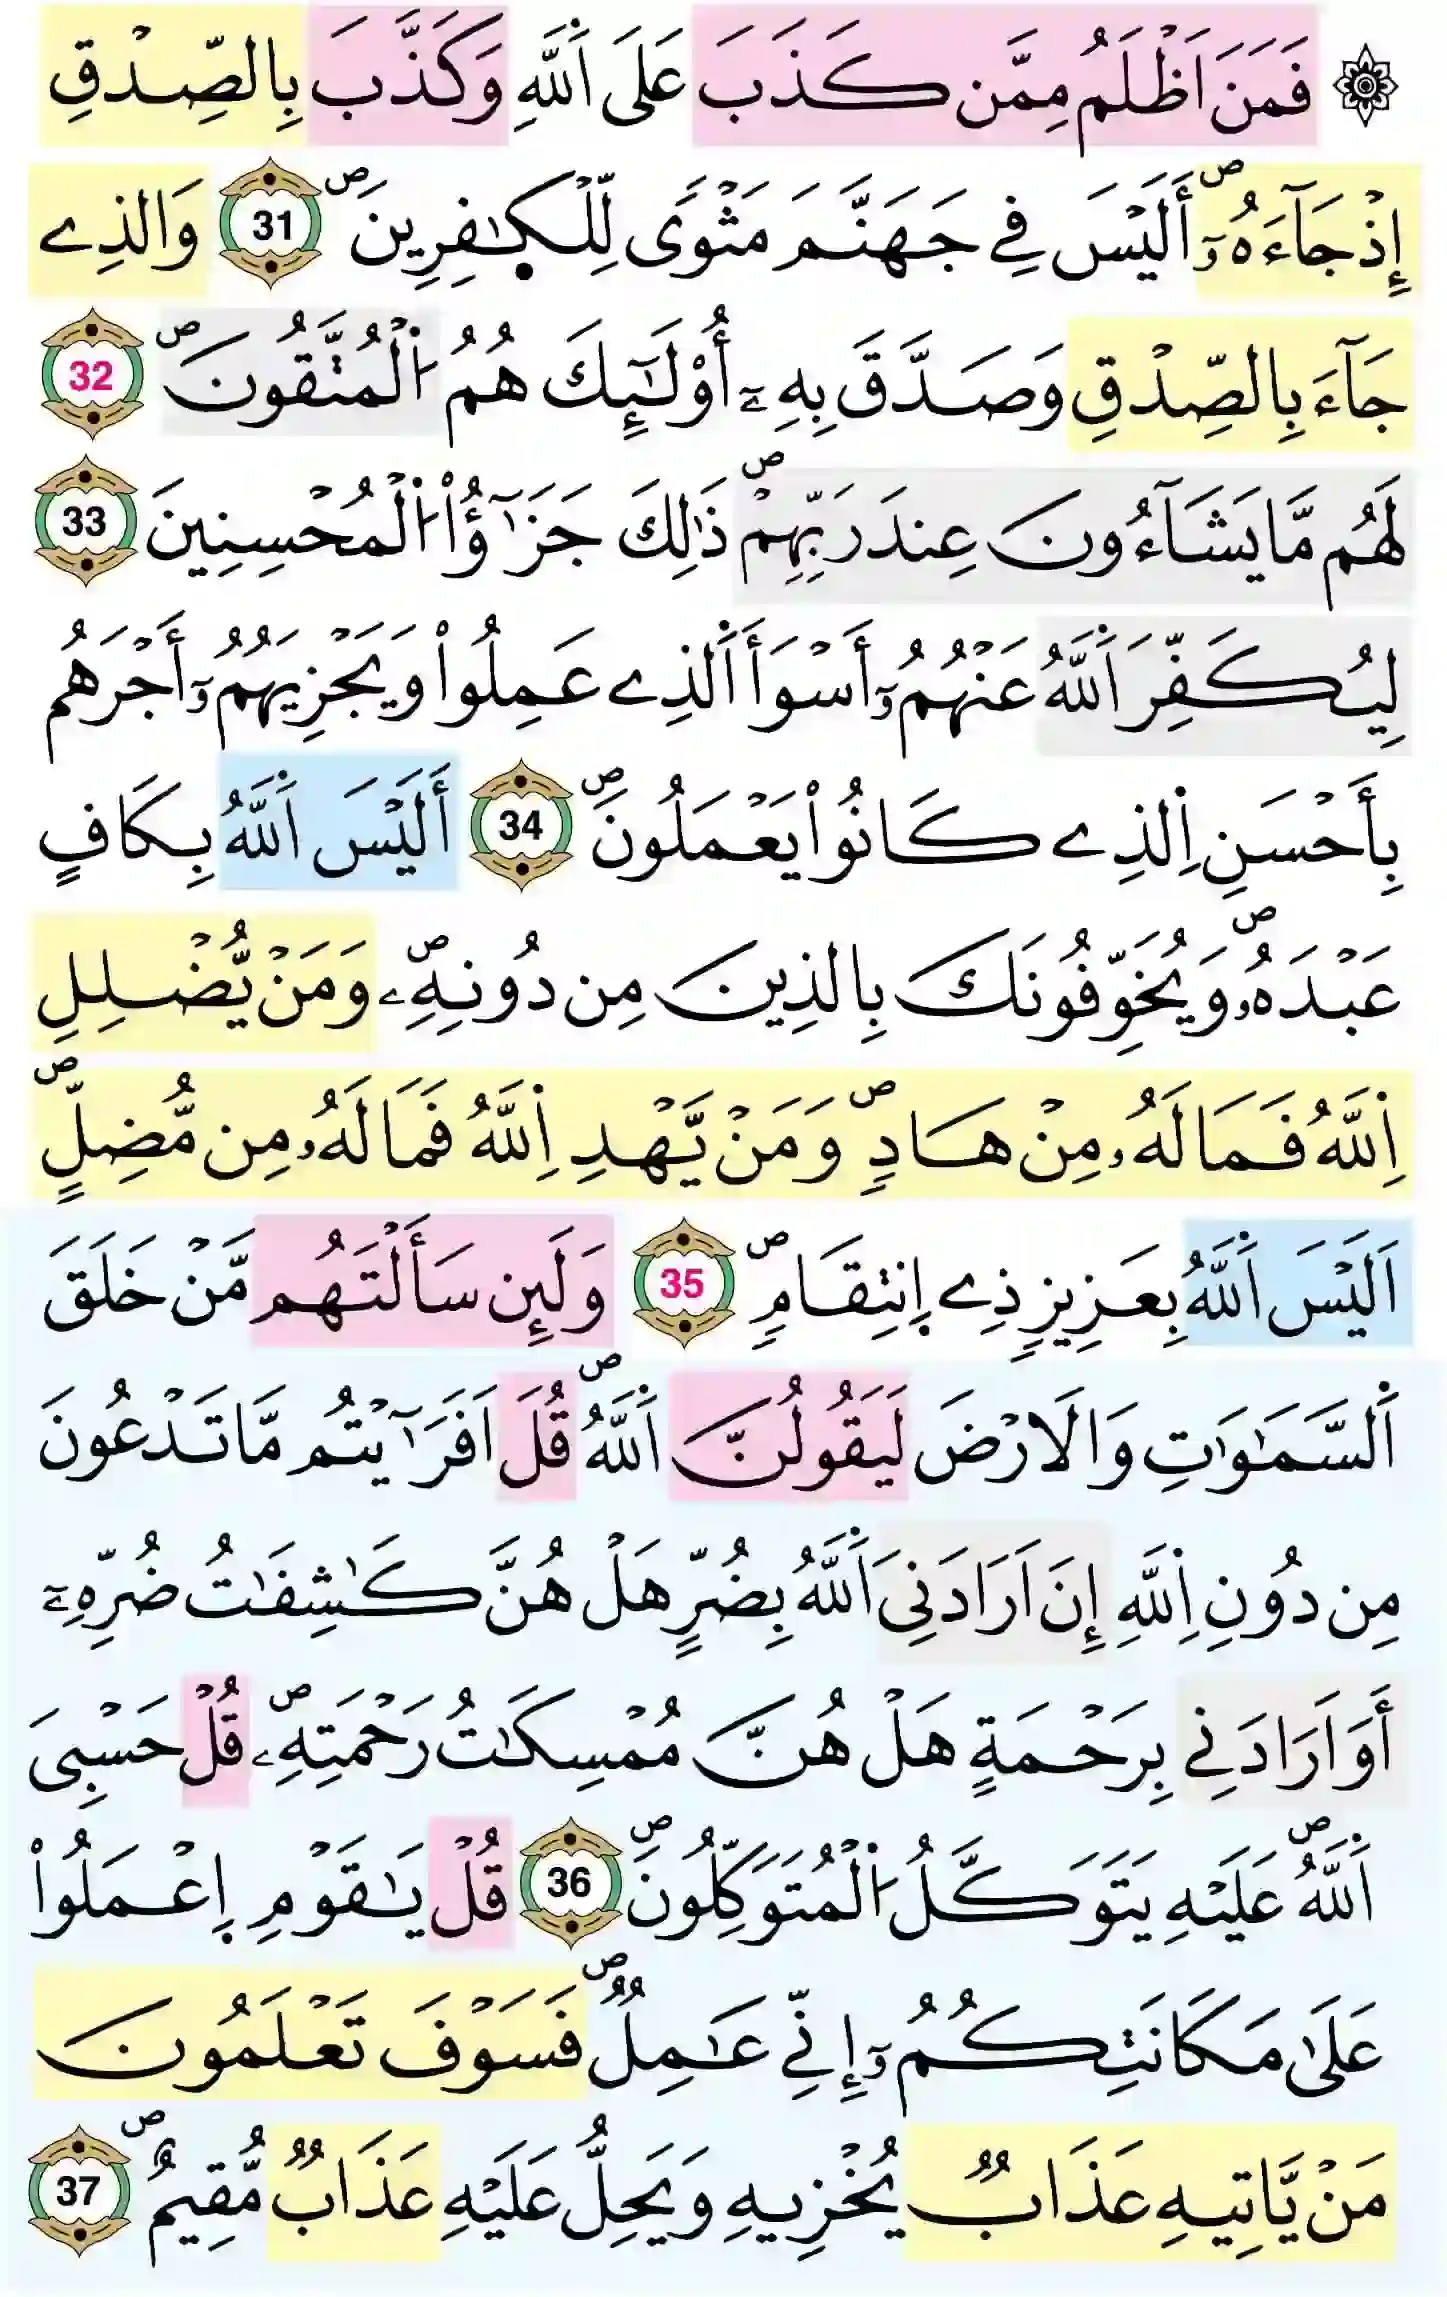 ۞ فَمَنَ اَظْلَمُ مِمَّن كَذَبَ عَلَى اَ۬للَّهِ وَكَذَّبَ بِالصِّدْقِ
إِذْ جَآءَهُۥٓۖ أَلَيْسَ فِے جَهَنَّمَ مَثْوىٗ لِّلْكٰ۪فِرِينَۖ 31 وَالذِے
جَآءَ بِالصِّدْقِ وَصَدَّقَ بِهِۦٓ أُوْلَٰٓئِكَ هُمُ اُ۬لْمُتَّقُونَۖ 32
لَهُم مَّا يَشَآءُونَ عِندَ رَبِّهِمْۖ ذَٰلِكَ جَزَٰٓؤُاْ اُ۬لْمُحْسِنِينَ 33
لِيُكَفِّرَ اَ۬للَّهُ عَنْهُمُۥٓ أَسْوَأَ اَ۬لذِے عَمِلُواْ وَيَجْزِيَهُمُۥٓ أَجْرَهُم
بِأَحْسَنِ اِ۬لذِے كَانُواْ يَعْمَلُونَۖ 34 أَلَيْسَ اَ۬للَّهُ بِكَافٍ
عَبْدَهُۥۖ وَيُخَوِّفُونَكَ بِالذِينَ مِن دُونِهِۦۖ وَمَنْ يُّضْلِلِ
اِ۬للَّهُ فَمَا لَهُۥ مِنْ هَادٖۖ وَمَنْ يَّهْدِ اِ۬للَّهُ فَمَا لَهُۥ مِن مُّضِلٍّۖ
اَلَيْسَ اَ۬للَّهُ بِعَزِيزٖ ذِے اِ۪نتِقَامٖۖ 35 وَلَئِن سَأَلْتَهُم مَّنْ خَلَقَ
اَ۬لسَّمَٰوَٰتِ وَالَارْضَ لَيَقُولُنَّ اَ۬للَّهُۖ قُلَ اَفَرَٰٓيْتُم مَّا تَدْعُونَ
مِن دُونِ اِ۬للَّهِ إِنَ اَرَادَنِيَ اَ۬للَّهُ بِضُرٍّ هَلْ هُنَّ كَٰشِفَٰتُ ضُرِّهِۦٓ
أَوَ اَرَادَنِے بِرَحْمَةٍ هَلْ هُنَّ مُمْسِكَٰتُ رَحْمَتِهِۦۖ قُلْ حَسْبِيَ
اَ۬للَّهُۖ عَلَيْهِ يَتَوَكَّلُ اُ۬لْمُتَوَكِّلُونَۖ 36 قُلْ يَٰقَوْمِ اِ۪عْمَلُواْ
عَلَىٰ مَكَانَتِكُمُۥٓ إِنِّے عَٰمِلٞۖ فَسَوْفَ تَعْلَمُونَ
مَنْ يَّاتِيهِ عَذَابٞ يُخْزِيهِ وَيَحِلُّ عَلَيْهِ عَذَابٞ مُّقِيمٌۖ 37